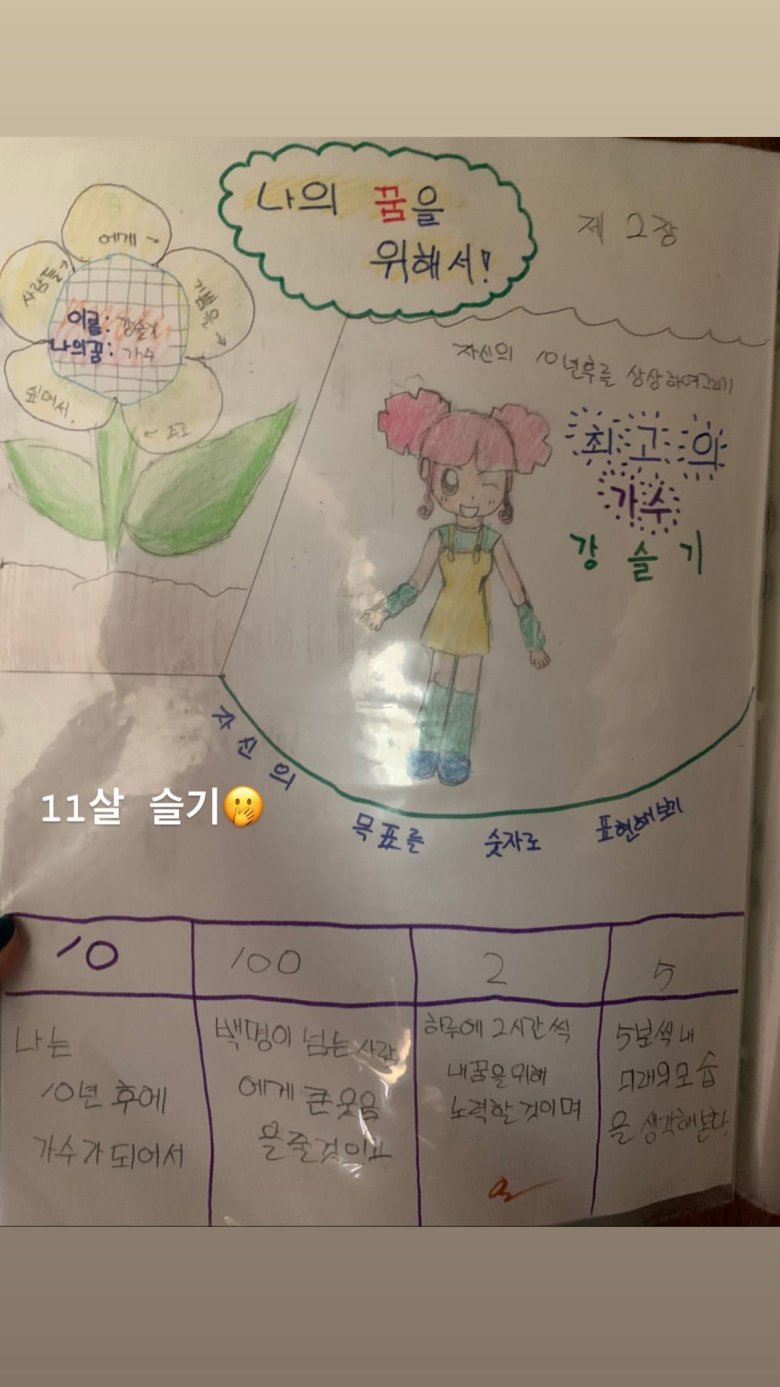 나의 꿈을
위해서!
제 2장
사람들
에게 →
기쁨을 →
← 주고
싶어서.
이름: 강슬기
나의꿈: 가수
자신의 10년후를 상상하여그리기
최고의
가수
강 슬 기
자신의 목표를 숫자로 표현해보기
11살 슬기🫢
10
나는
10년 후에
가수가 되어서
100
백명이 넘는 사람
에게 큰 웃음
을 줄것이고
2
하루에 2시간 씩
내꿈을 위해
노력할 것이며
5
5분씩 내
미래의 모습
을 생각해 본다.